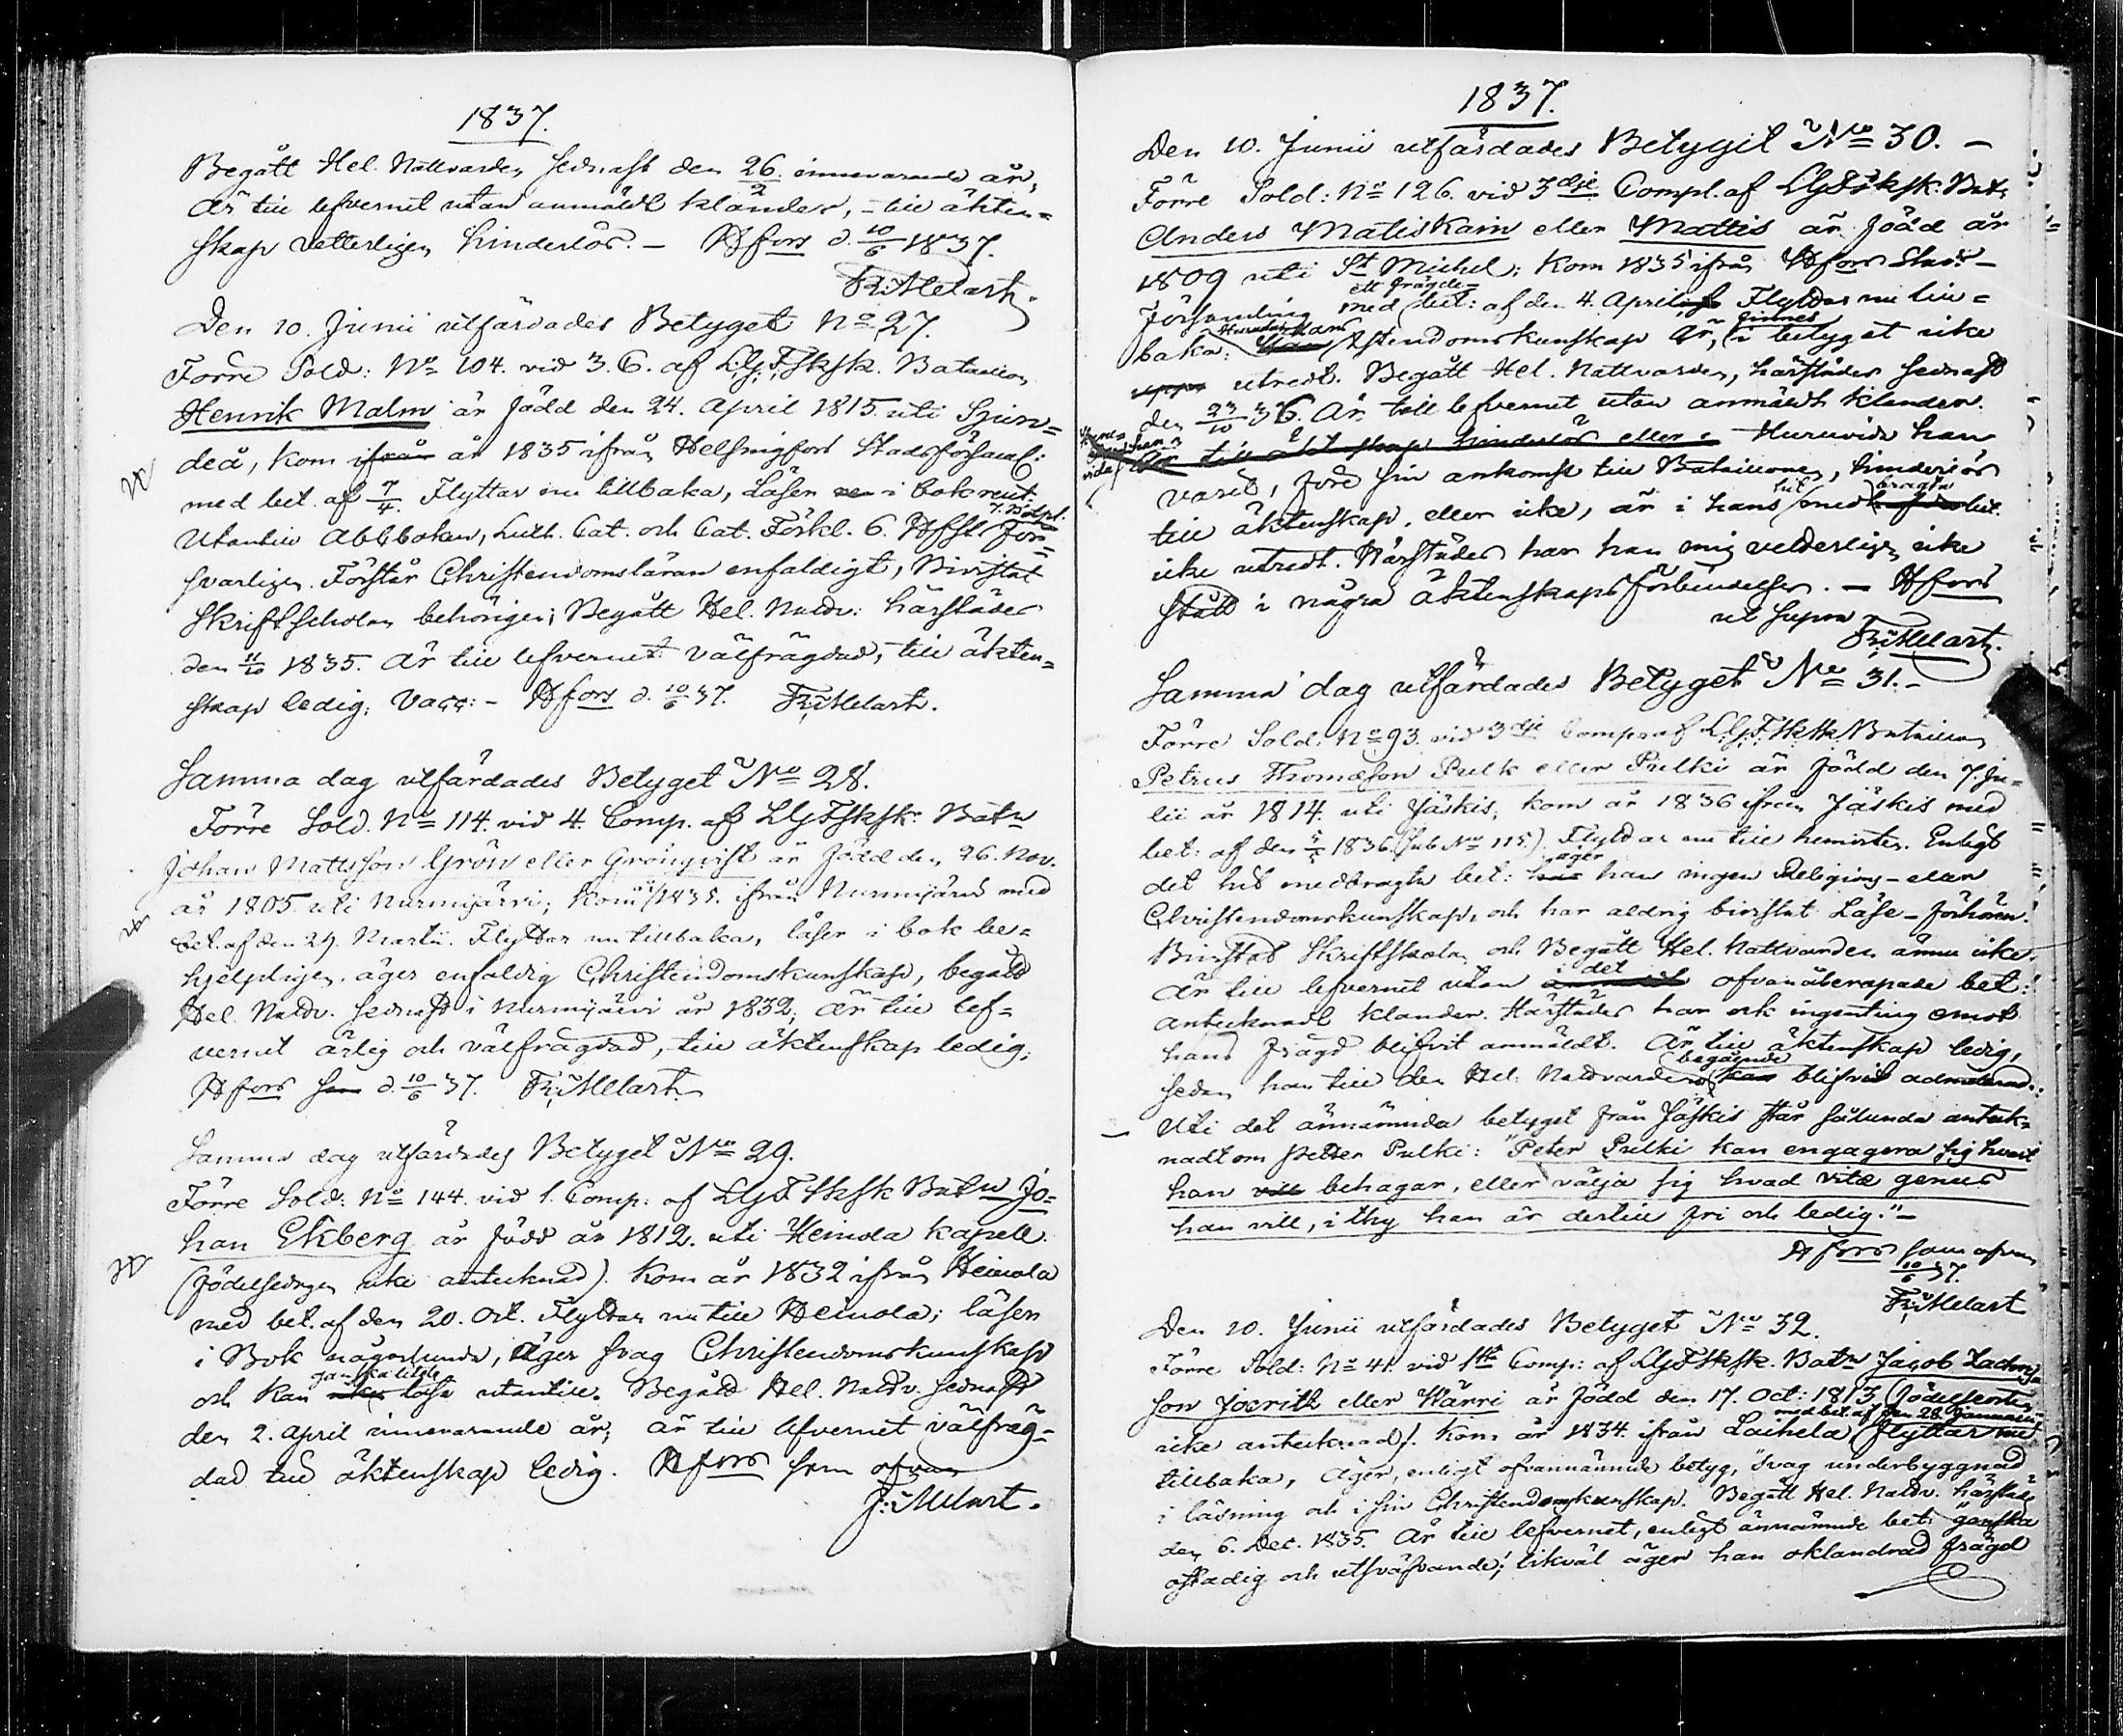 1837.
Begått Hel. Nattvarden sednast den 26/2 innevarande år,
är till lefvernet utan anmäldt klander, - till äkten=
skap vetterligen hinderlös. - Hfors d. 10/6 1837.
Fr: Melart.
Den 10. Junii utfärdades Betyget No 27.
Förre Sold: No 104. vid 3. C. af LG:F:Sksk. Bataillon
Henrik Malm är född den 24. April 1815. uti Sjun=
deå, kom ifrån år 1835 ifrån Helsingfors Stadsförsaml:
med bet. af 7/4. Flyttar nu tillbaka, Läser i bok rent.
Utantill Abcboken, Luth. Cat. och Cat. Förkl. 6. Hfst. För=
svarligen. Förstår Christendomsläran enfaldigt, Bivistat
Skriftscholan behörigen; Begått Hel. Nattv: härstädes
den 11/10 1835. Är till lefvernet välfrägdad, till äkten=
skap ledig. Vacc: - Hfors d. 10/6 37. Fr: Melart.
Samma dag utfärdades Betyget No 28.
Förre Sold. No 114. vid 4. Comp. af LG:F:Sksk: Batn
Johan Mattsson Grön eller Grönqvist är född den 26. Nov.
år 1805. uti Nurmijärvi; Kom 1835. ifrån Nurmijärvi med
bet. af den 29. Martii. Flyttar nu tillbaka, läser i bok be=
hjelpligen. äger enfaldig Christendomskunskap, begått
Hel. Nattv. sednast i Nurmijärvi år 1832, är till lef=
vernet ärlig och välfrägdad, till äktenskap ledig.
Hfors d. 10/6 37. Fr: Melart
Samma dag utfärdades Betyget No 29.
Förre Sold: No 144. vid 1. Comp. af LG:F Sksk Batn Jo=
han Ekberg är född år 1812. uti Heinola kapell.
(födelsedagen icke antecknad). Kom år 1832 ifrån Heinola
med bet. af den 20. Oct. Flyttar nu till Heinola; läser
i Bok någorlunda, Äger svag Christendomskunskap
ganska litet
och kan läsa utantill. Begått Hel. Nattv. sednast
den 2. April innevarande år, är till lefvernet välfräg=
dad till äktenskap ledig. Hfors som ofvan
F: Melart.
1837.
Den 10. Junii utfärdades Betyget No 30. -
Förre Sold: No 126. vid 3dje Comp. af LG:F:Sksk: Batn
Anders Matiskain eller Mattis är född år
1809 uti St Michel; Kom 1835 ifrån Hfors Stads-
församling med bet: af den 4. April. Flyttar nu till=
baka: Huruvida hans Christendomskunskap är, finnes i betyget icke
utredt. Begått Hel. Nattvarden, härstädes sednast
den 23/10 36. Är till lefvernet utan anmäldt klander.
Är till äktenskap hinderlös eller Huruvida han
varit, före sin ankomst till Bataillonen, hinderlös
till äktenskap, eller icke, är i hans hit medbragta bet.
icke utredt. Härstädes har han mig vetterligen icke
stått i några äktenskaps förbindelser. - Hfors
ut supra
Fr: Melart.
Samma dag utfärdades Betyget No 31. -
Förre Sold. No 93. vid 3dje Comp af LG:F:Sksk Bataillon
Petrus Thomæson Pulk eller Pulki är född den 7. Ju=
lii år 1814. uti Jäskis; kom år 1836 ifrån Jäskis med
bet: af den 5/5 1836. (sub No 115.). Flyttar nu till hemorten. Enligt
det hit medbragta bet: äger han ingen Religions- eller
Christendomskunskap, och har aldrig bivistat Läse-förhören.
Bivistat Skriftskolan och Begått Hel. Nattvarden ännu icke.
Är till lefvernet utan i det ofvanåberopade bet:
antecknadt klander. Härstädes har ock ingenting emot
hans frägd blifvit anmäldt. Är till äktenskap ledig,
sedan han till den Hel. Nattvardens begående blifvit admitterad.
Uti det ännämnda betyget från Jäskis står sålunda anteck=
nadt om Petter Pulki: "Peter Pulki kan engagera sig hvart
han vill behagar, eller välja sig hvad vitæ genus
han vill, i thy han är dertill fri och ledig." -
Hfors som ofvan
10/6 37.
Fr: Melart
Den 10. Junii utfärdades Betyget No 32.
Förre Sold: No 41. vid 1sta Comp: af LG:F:Sksk. Batn Jacob Zachris=
son Joerith eller Härri är född den 17. Oct: 1813 (födelseorten
med bet. af den 28 Januarii
icke antecknad). Kom år 1834. ifrån Laihela, flyttar nu
tillbaka, Äger, enligt ofvannämnde betyg, "svag underbyggnad
i läsning och i sin Christendomskunskap. Begått Hel. Nattv. härstädes
den 6. Dec. 1835. Är till lefvernet, enligt ännämnde bet: "ganska
ostadig och utsväfvande; likväl äger han oklandrad frägd